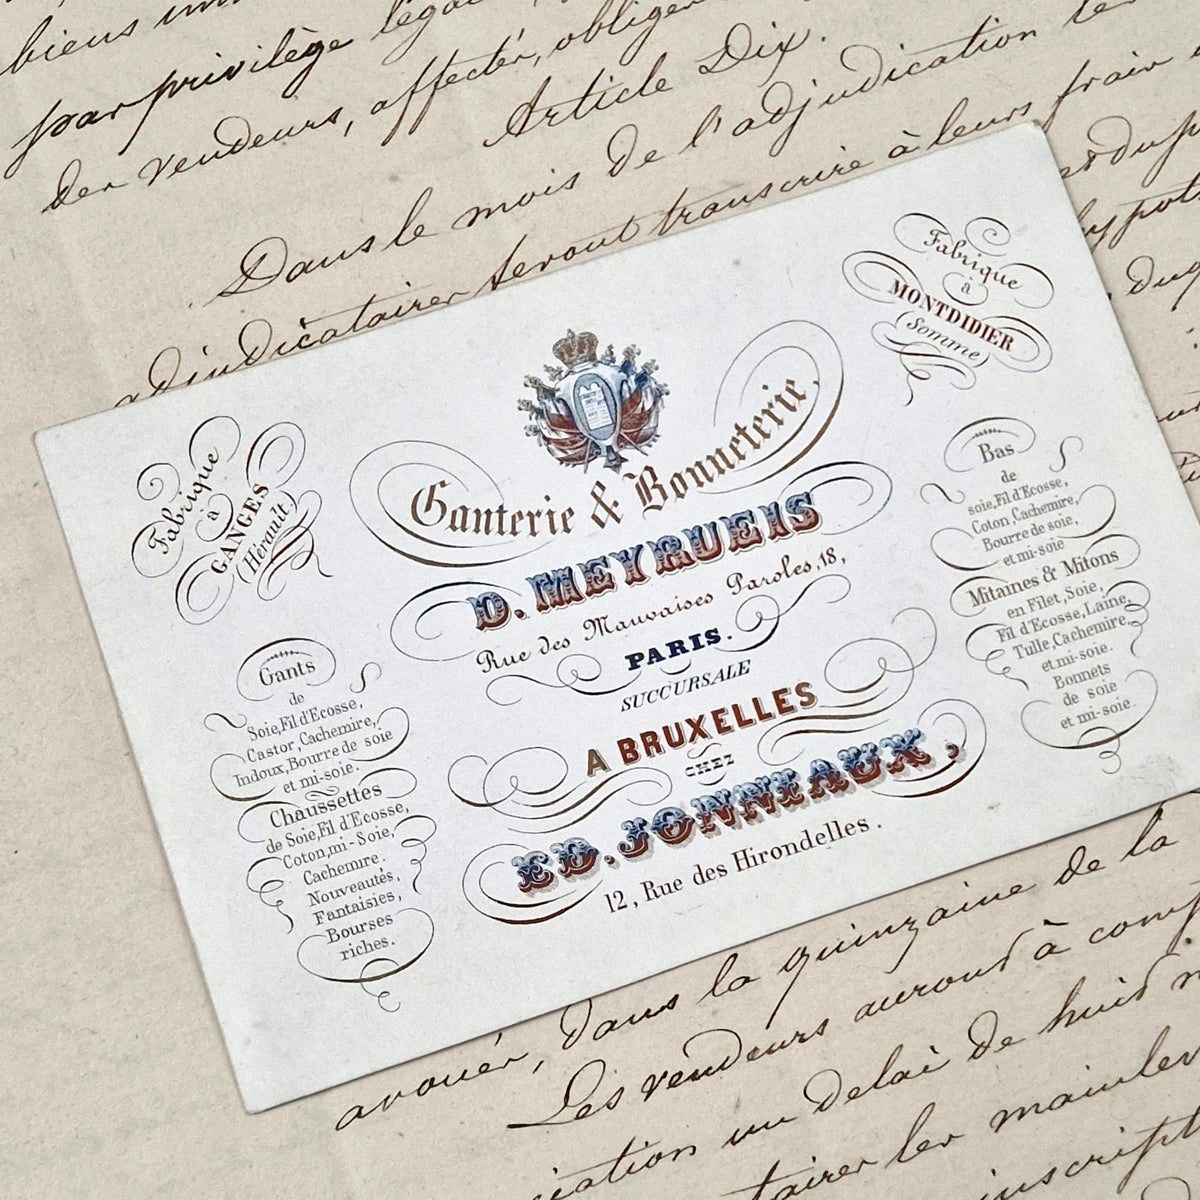 biens
par privilège
des vendeurs, affecter, obliger
Article Dix.
Dans le mois de l'adjudication
adjudicataires seront transcrire à leurs frais
Fabrique
à
GANGES
(Hérault)
Fabrique
à
MONTDIDIER
(Somme)
Ganterie & Bonneterie,
D. MEYRUEIS
Rue des Mauvaises Paroles, 18,
PARIS.
SUCCURSALE
A BRUXELLES
CHEZ
ED. JONNEAUX,
12, Rue des Hirondelles.
Gants
de
Soie, Fil d'Ecosse,
Castor, Cachemire,
Indoux, Bourre de soie
et mi-soie.
Chaussettes
de Soie, Fil d'Ecosse,
Coton, mi-Soie,
Cachemre.
Nouveautés,
Fantaisies,
Bourses
riches.
Bas
de
soie, Fil d'Ecosse,
Coton, Cachemire,
Bourre de soie,
et mi-soie
Mitaines & Mitons
en Filet, Soie,
Fil d'Ecosse, Laine,
Tulle, Cachemire,
et mi-soie.
Bonnets
de soie
et mi-soie.
avouér, dans la quinzaine de la
Les vendeurs auront à
un délai de huit